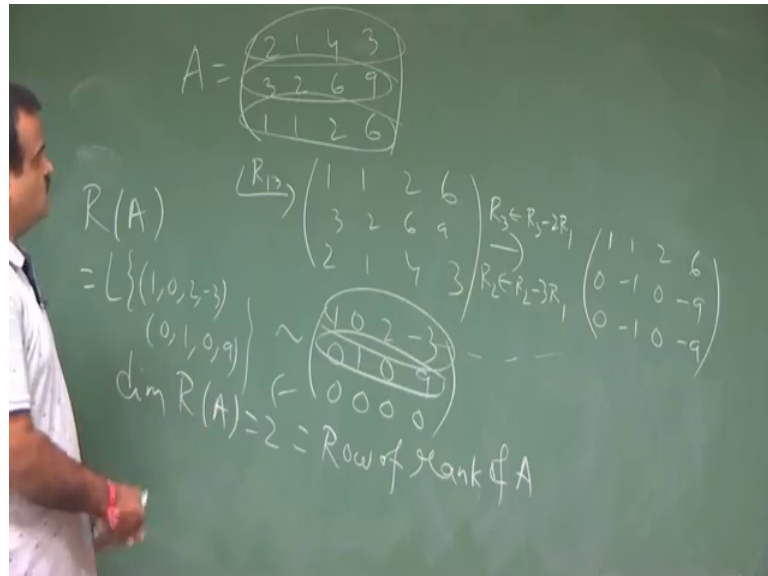 A = ( 2 1 4 3
3 2 6 9
1 1 2 6 )
R₁₃ → ( 1 1 2 6
3 2 6 9
2 1 4 3 )
R₃ ← R₃ - 2R₁
→
R₂ ← R₂ - 3R₁
( 1 1 2 6
0 -1 0 -9
0 -1 0 -9 )
R(A)
= L{(1,0,2,-3)
(0,1,0,9)}
~ ( 1 0 2 -3
0 1 0 9
0 0 0 0 ) - - -
dim R(A) = 2 = Row of rank of A